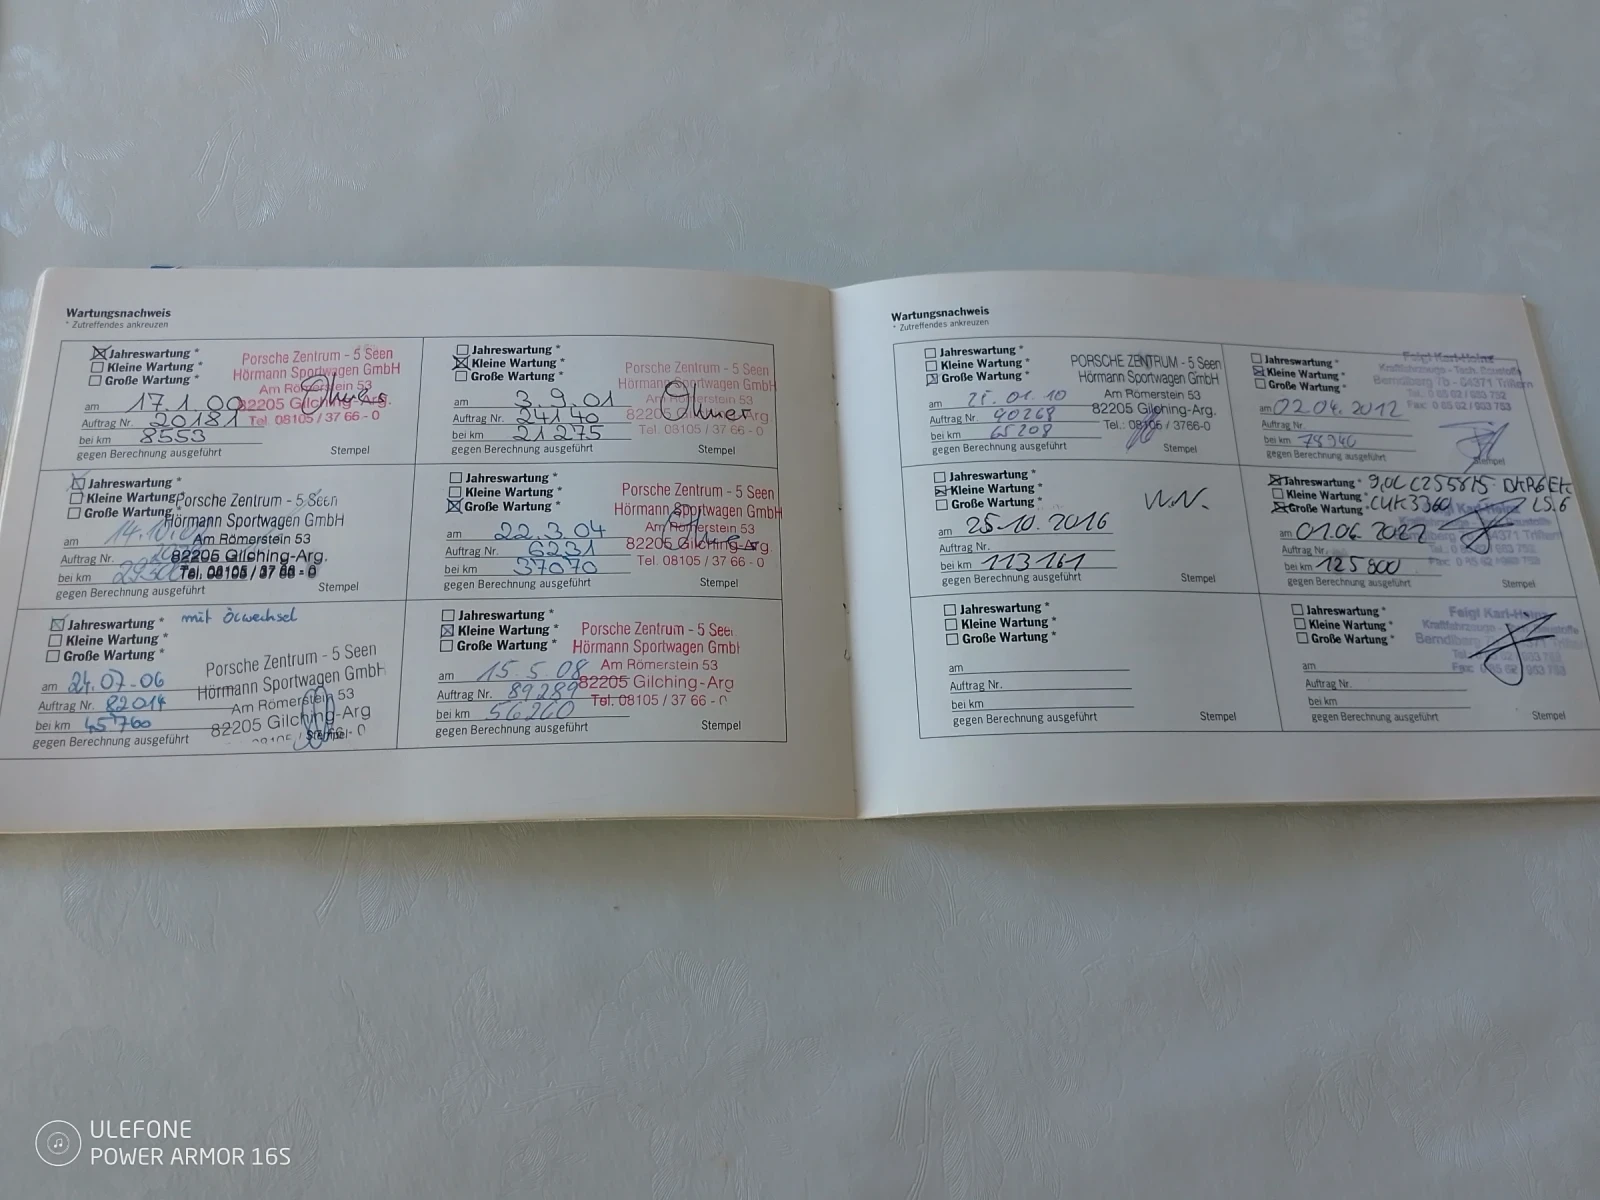 Wartungsnachweis
* Zutreffendes ankreuzen
Jahreswartung *
Kleine Wartung *
Große Wartung *
Porsche Zentrum - 5 Seen
Hörmann Sportwagen GmbH
Am Römerstein 53
82205 Gilching-Arg.
Tel. 08105 / 37 66 - 0
am 17.1.00
Auftrag Nr. 20181
bei km 8553
gegen Berechnung ausgeführt Stempel
Jahreswartung *
Kleine Wartung *
Große Wartung *
Porsche Zentrum - 5 Seen
Hörmann Sportwagen GmbH
Am Römerstein 53
82205 Gilching-Arg.
Tel. 08105 / 37 66 - 0
am 3.9.01
Auftrag Nr. 24140
bei km 21275
gegen Berechnung ausgeführt Stempel
Jahreswartung *
Kleine Wartung
Große Wartung
Porsche Zentrum - 5 Seen
Hörmann Sportwagen GmbH
Am Römerstein 53
82205 Gilching-Arg.
Tel. 08105 / 37 66 - 0
am 14.10.
Auftrag Nr.
bei km
gegen Berechnung ausgeführt Stempel
Jahreswartung *
Kleine Wartung *
Große Wartung *
Porsche Zentrum - 5 Seen
Hörmann Sportwagen GmbH
Am Römerstein 53
82205 Gilching-Arg.
Tel. 08105 / 37 66 - 0
am 22.3.04
Auftrag Nr. 6231
bei km 37070
gegen Berechnung ausgeführt Stempel
Jahreswartung * mit Ölwechsel
Kleine Wartung *
Große Wartung *
Porsche Zentrum - 5 Seen
Hörmann Sportwagen GmbH
Am Römerstein 53
82205 Gilching-Arg
am 24.07.06
Auftrag Nr. 82014
bei km 45760
gegen Berechnung ausgeführt Stempel
Jahreswartung *
Kleine Wartung *
Große Wartung *
Porsche Zentrum - 5 Seen
Hörmann Sportwagen GmbH
Am Römerstein 53
82205 Gilching-Arg
Tel. 08105 / 37 66 - 0
am 15.5.08
Auftrag Nr. 89289
bei km 56260
gegen Berechnung ausgeführt Stempel
Wartungsnachweis
* Zutreffendes ankreuzen
Jahreswartung *
Kleine Wartung *
Große Wartung *
PORSCHE ZENTRUM - 5 Seen
Hörmann Sportwagen GmbH
Am Römerstein 53
82205 Gilching-Arg.
Tel.: 08105 / 3766-0
am .01.10
Auftrag Nr. 90268
bei km 65208
gegen Berechnung ausgeführt Stempel
Jahreswartung *
Kleine Wartung *
Große Wartung *
Feigl Karl-Heinz
am 02.04.2012
Auftrag Nr.
bei km 78940
gegen Berechnung ausgeführt Stempel
Jahreswartung *
Kleine Wartung *
Große Wartung *
am 25.10.2016
Auftrag Nr.
bei km 113161
gegen Berechnung ausgeführt Stempel
Jahreswartung *
Kleine Wartung *
Große Wartung *
am 01.06.2022
Auftrag Nr.
bei km 125800
gegen Berechnung ausgeführt Stempel
Jahreswartung *
Kleine Wartung *
Große Wartung *
am
Auftrag Nr.
bei km
gegen Berechnung ausgeführt Stempel
Jahreswartung *
Kleine Wartung *
Große Wartung *
Feigl Karl-Heinz
am
Auftrag Nr.
bei km
gegen Berechnung ausgeführt Stempel
ULEFONE
POWER ARMOR 16S